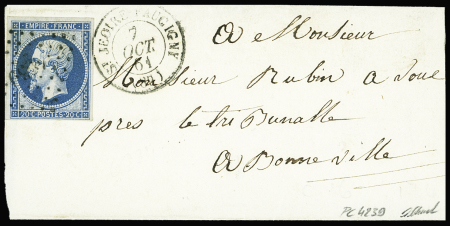 EMPIRE FRANC.
20C POSTES 20C
ST JEOIRE-FAUCIGNY
7
OCT.
61
(89)
A Monsieur
Monsieur Rubin avoué
pres le tri Bunalle
A Bonneville
PC 4239